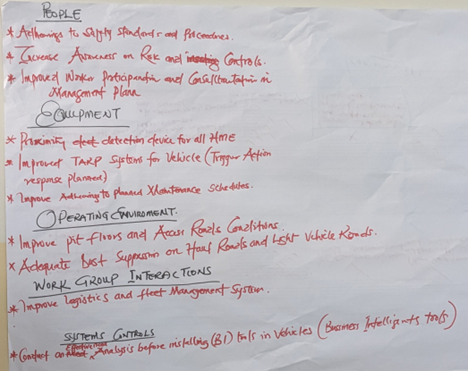 PEOPLE
* Adhering to Safety Standards and Procedures.
* Increase Awareness on Risk and Controls.
* Improved Worker Participation and Consultation in
Management Plans
EQUIPMENT
* Proximity detection device for all HME
* Improved TARP System for Vehicle (Trigger Action
response planned)
* Improve Adhering to planned Maintenance Schedules.
OPERATING ENVIROMENT.
* Improve pit floors and Access Roads Conditions.
* Adequate Dust Suppression on Haul Roads and Light Vehicle Roads.
WORK GROUP INTERACTIONS
* Improve logistics and fleet Management System.
SYSTEMS CONTROLS
* Conduct an Effectiveness Analysis before installing (BI) tools in Vehicles (Business Intelligents tools)